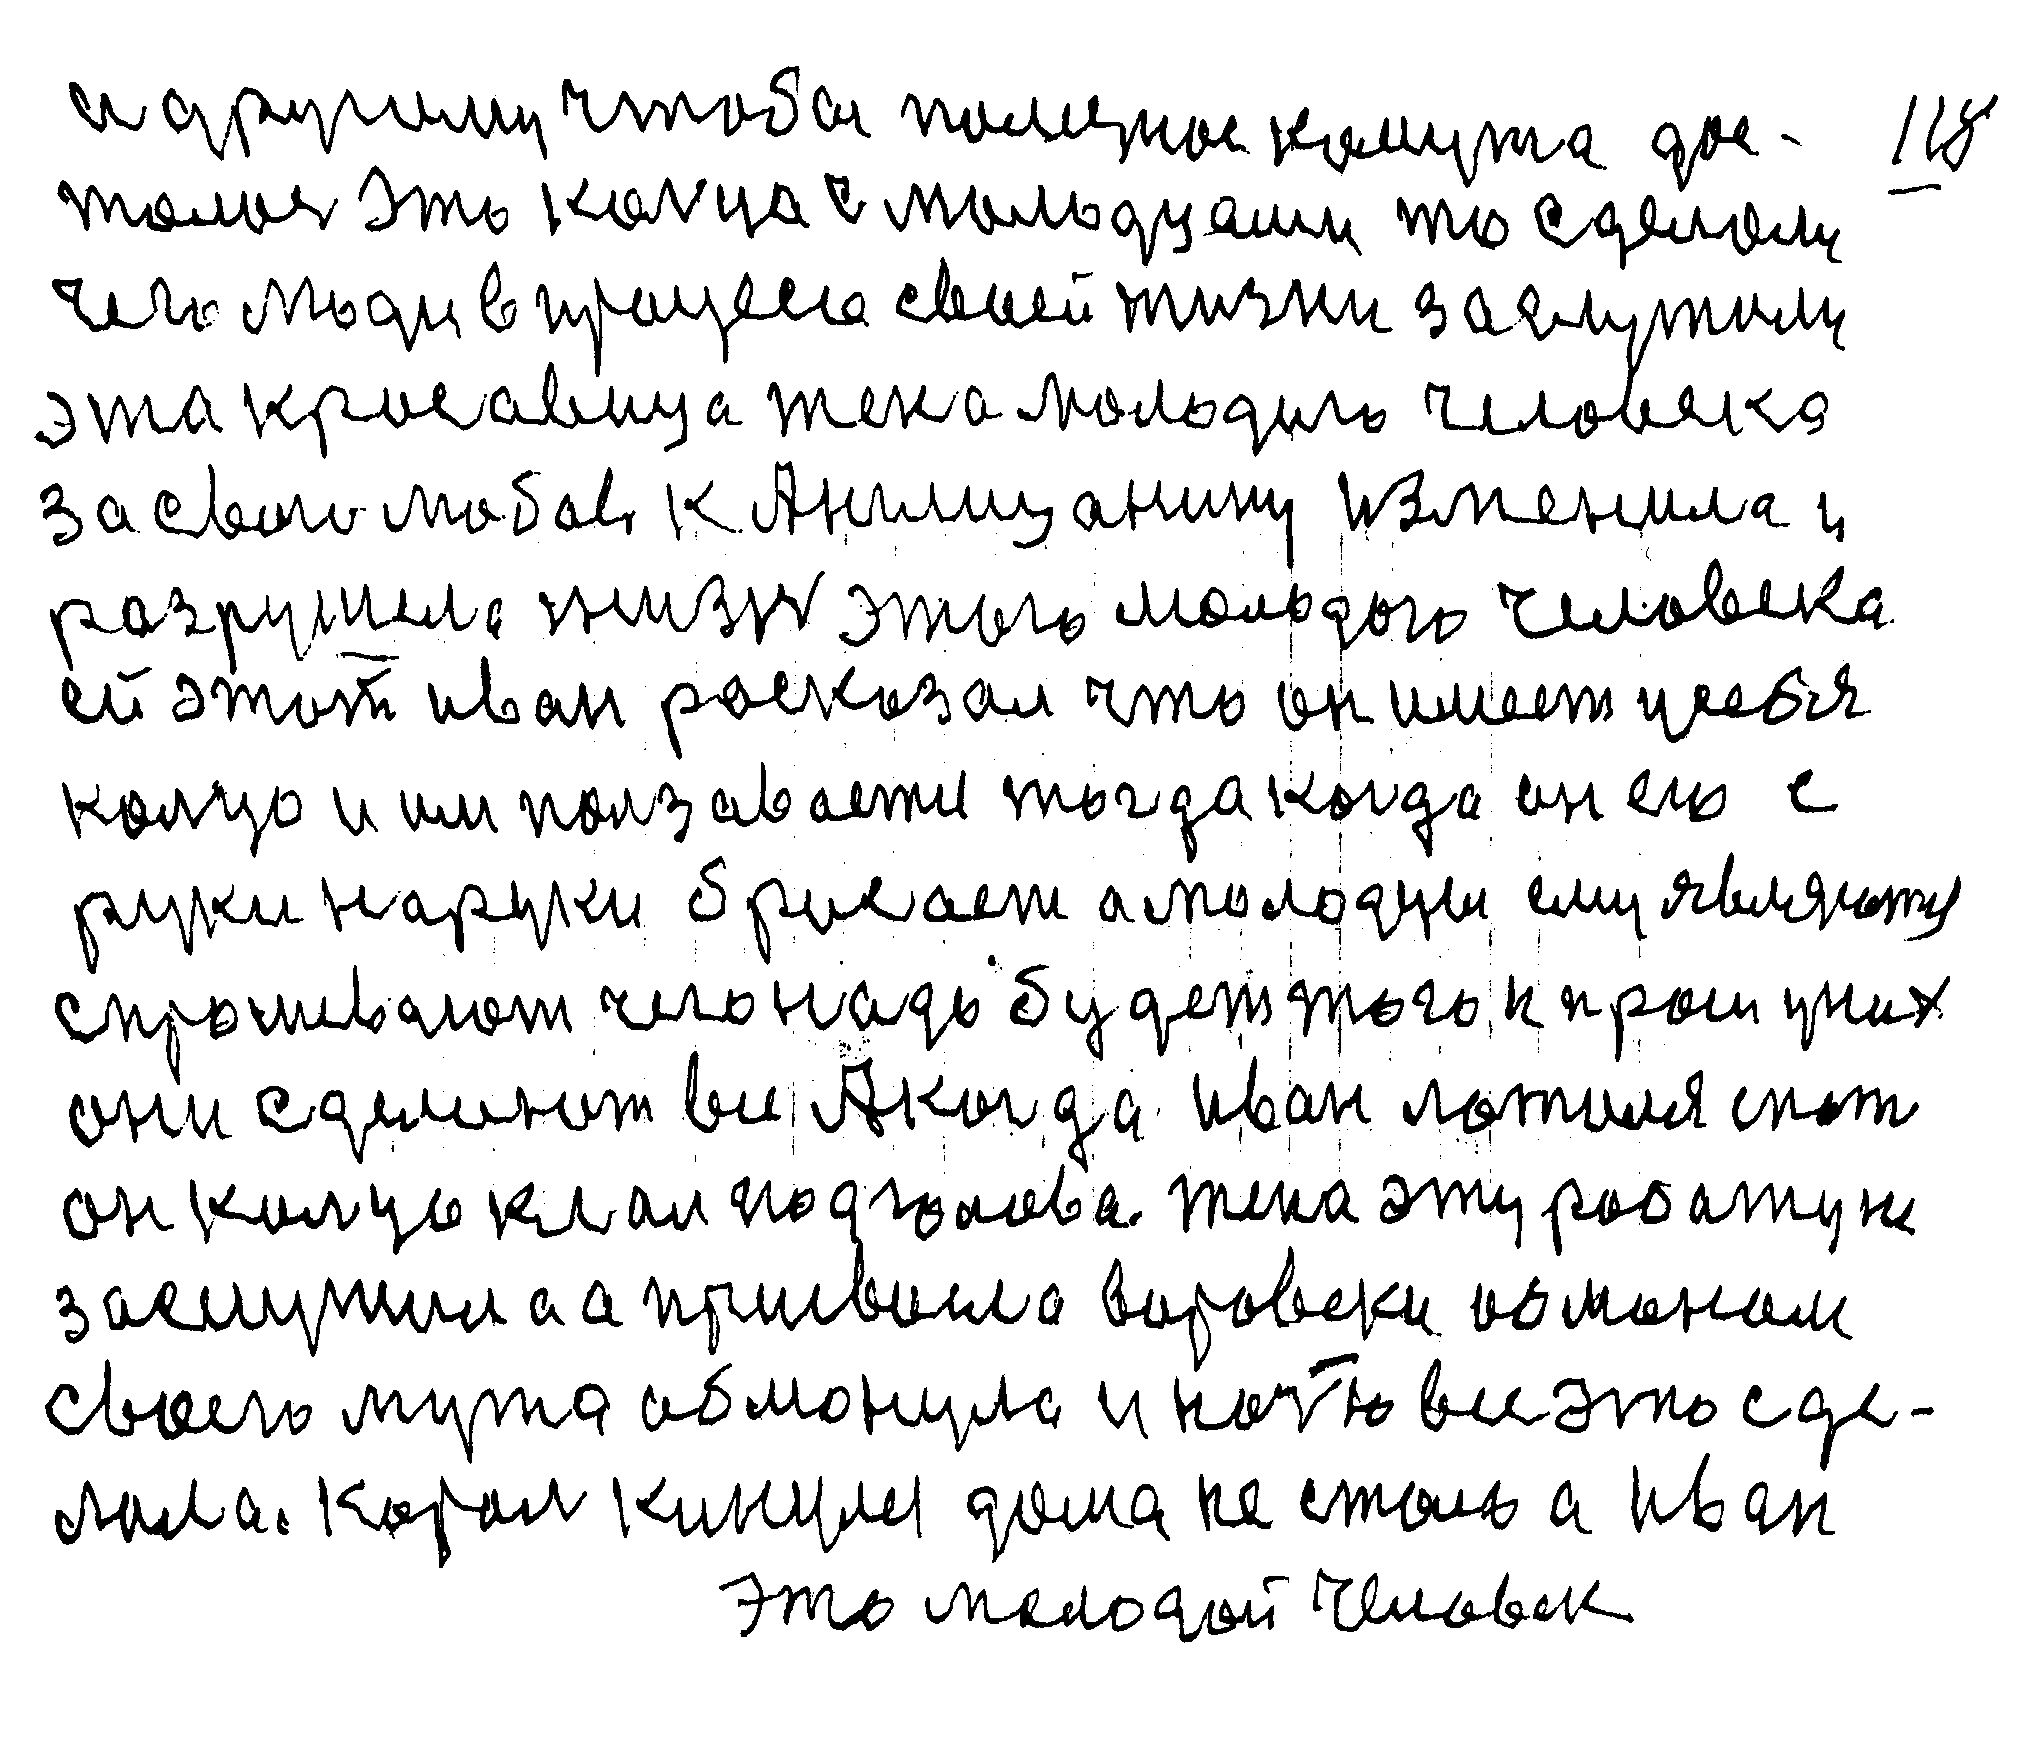 и другому чтобы полезное комужа дос- 118
толос это колца с молодцами то сделоли
чего люди в процесе своей жизни заслужили
эта кросавица жена молодого человека
за свою любов к Англиџанину изменила и
разрушела жизнь этого молодого человека
ей этот иван росказал что он имеет усебя
колцо и им ползаваетя тогда когда он его с
руки наруки бросает амолодци ему являютя
спрошевают чего надо будет того и прош уних
они сделоют все А когда иван ложился спат
он колцо клал подголова. жена эту роботу не
заслужила а присвоела воровски обманом
своего мужа обманула и ночтю все это сде-
лала. Корол кинулся дома не стало а иван
это молодой человек